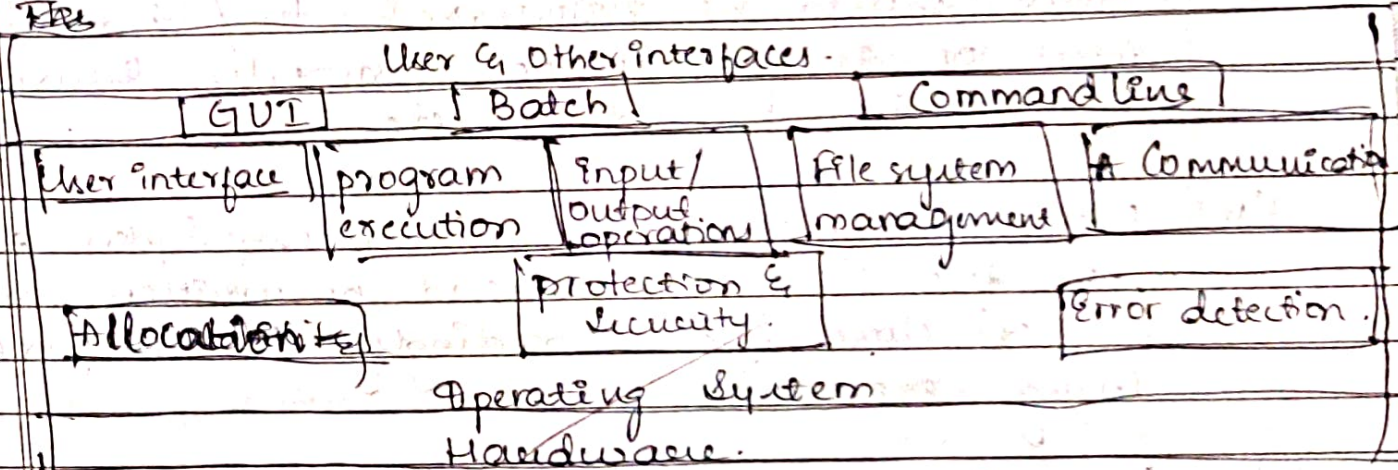 User & Other interfaces.
GUI Batch Command line
User interface program execution input/ output operations File system management Communicatio
Allocation protection & security. Error detection.
Operating System
Hardware.